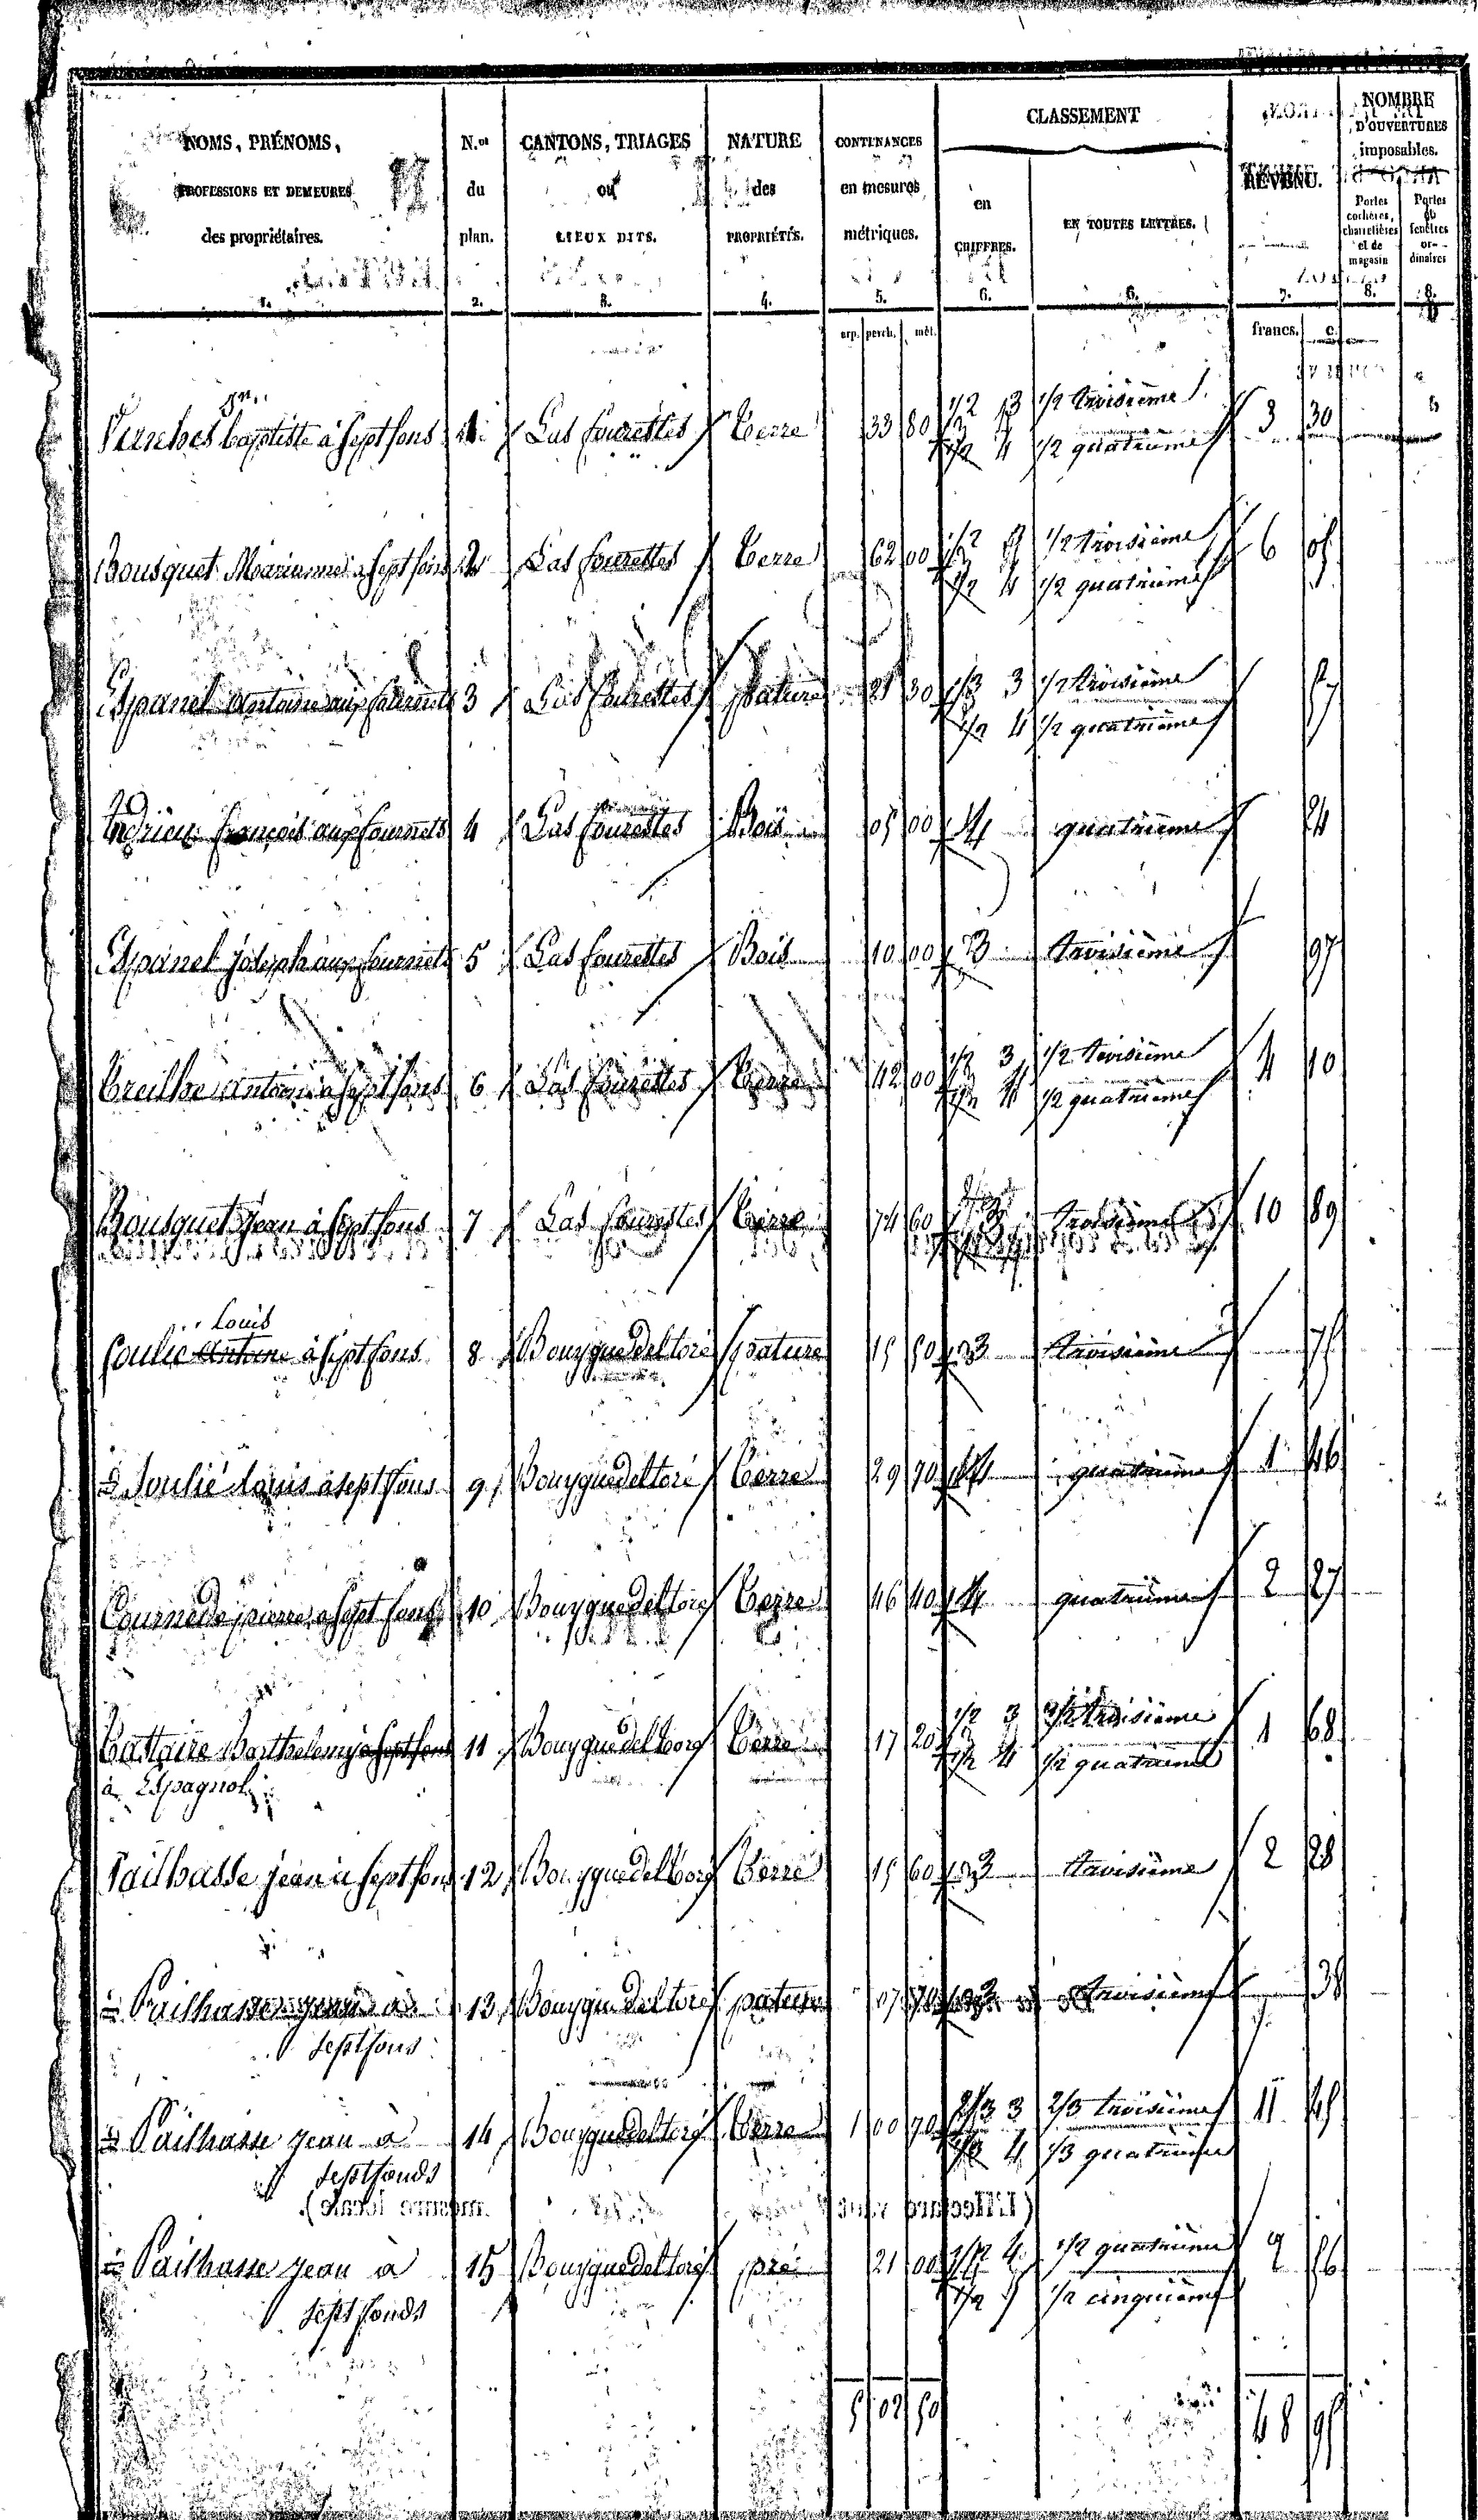 NOMS, PRÉNOMS, PROFESSIONS ET DEMEURES des propriétaires. 1.
N.os du plan. 2.
CANTONS, TRIAGES ou LIEUX DITS. 3.
NATURE des PROPRIÉTÉS. 4.
CONTENANCES en mesures métriques. 5.
CLASSEMENT
en CHIFFRES. 6.
EN TOUTES LETTRES. 6.
REVENU. 7.
NOMBRE D'OUVERTURES imposables.
Portes cochères, charretières et de magasin 8.
Portes et fenêtres ordinaires 8.
arp. perch. mèt. francs. c.
baptiste à Septfons 1 Las fourettes Terre 33 80 1/2 3 1/2 troisième 3 30
1/2 4 1/2 quatrième
Bousquet Marianne à Septfons 2 Las fourettes Terre 62 00 1/2 3 1/2 troisième 6 05
1/2 4 1/2 quatrième
Espanel antoine aux 3 Las fourettes pature 21 30 1/2 3 1/2 troisième 57
1/2 4 1/2 quatrième
Andrieu françois aux fournets 4 Las fourettes Bois 05 00 4 quatrième 24
Espanel joseph aux fournets 5 Las fourettes Bois 10 00 3 troisième 97
Treilhe antoine à Septfons 6 Las fourettes Terre 42 00 1/2 3 1/2 troisième 4 10
1/2 4 1/2 quatrième
Bousquet Jean à Septfons 7 Las fourettes Terre 74 60 3 troisième 10 89
Louis
Soulié antoine à Septfons 8 Bouygue del toré pature 15 50 3 troisième 75
Soulié Louis à Septfons 9 Bouygue del toré Terre 29 70 4 quatrième 1 46
Cournede pierre à Septfons 10 Bouygue del toré Terre 46 40 4 quatrième 2 27
Barthelemy à Septfons 11 Bouygue del toré Terre 17 20 1/2 3 1/2 troisième 1 68
à Espagnol 1/2 4 1/2 quatrième
Pailhasse jean à Septfons 12 Bouygue del toré Terre 15 60 3 troisième 2 28
Pailhasse jean à 13 Bouygue del toré pature 07 70 3 troisième 38
Septfons
Pailhasse jean à 14 Bouygue del toré Terre 1 00 70 2/3 3 2/3 troisième 11 45
Septfonds 1/3 4 1/3 quatrième
Pailhasse jean à 15 Bouygue del toré pré 21 00 1/2 4 1/2 quatrième 2 56
Septfonds 1/2 5 1/2 cinquième
5 02 50 48 95